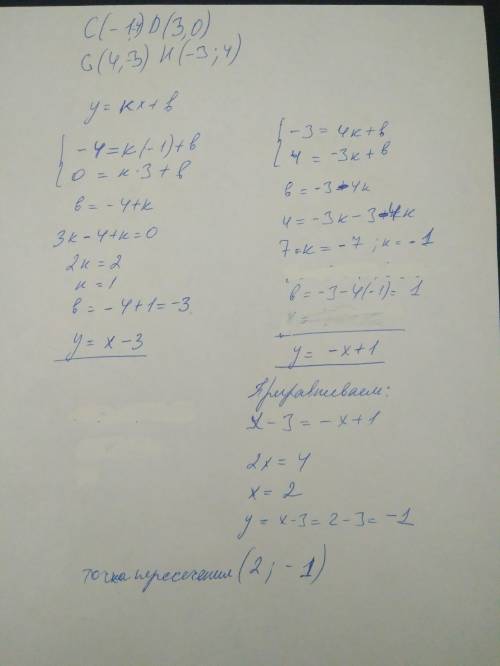 C(-1;4) D(3,0)
G(4,-3) H(-3;4)
y=kx+в
-4=k(-1)+в
0=k·3+в
в=-4+k
3k-4+k=0
2k=2
k=1
в=-4+1=-3
y=x-3
-3=4k+в
4=-3k+в
в=-3-4k
4=-3k-3-4k
7=k=-7; k=-1
в=-3-4(-1)=1
y=-x+1
Приравниваем:
x-3=-x+1
2x=4
x=2
y=x-3=2-3=-1
точка пересечения (2;-1)